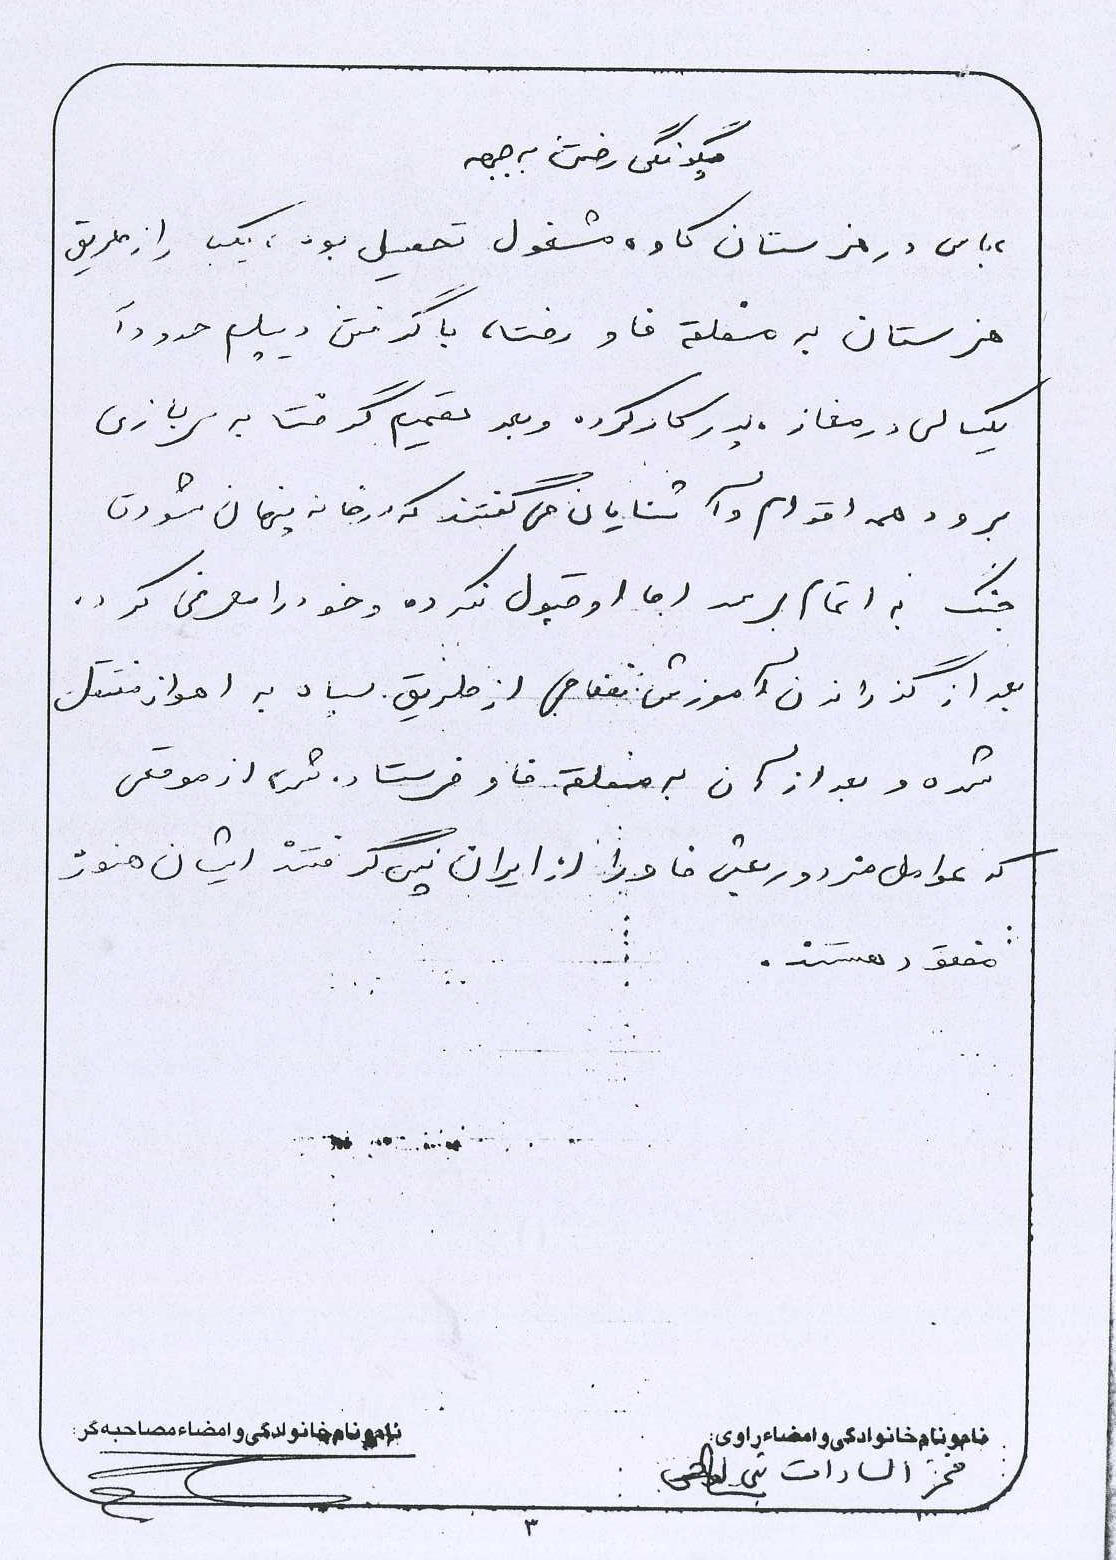 چگونگی رفتن به جبهه
عباس در هنرستان کاوه مشغول تحصیل بود، یکبار از طریق
هنرستان به منطقه فاو رفت، با گرفتن دیپلم حدوداً
یکسالی در مغازه پدر کار کرده و بعد تصمیم گرفت به سربازی
برود همه اقوام و آشنایان می گفتند که در خانه پنهان شو تا
جنگ به اتمام برسد اما او قبول نکرده و خود را معرفی کرد.
بعد از گذراندن آموزش نظامی از طریق سپاه به اهواز منتقل
شده و بعد از آن به منطقه فاو فرستاده شد، از موقعی
که عوامل مزدور بعثی فاو را از ایران پس گرفتند ایشان هنوز
مفقود هستند.
نام و نام خانوادگی و امضاء راوی:
فخر السادات
نام و نام خانوادگی و امضاء مصاحبه گر:
۳